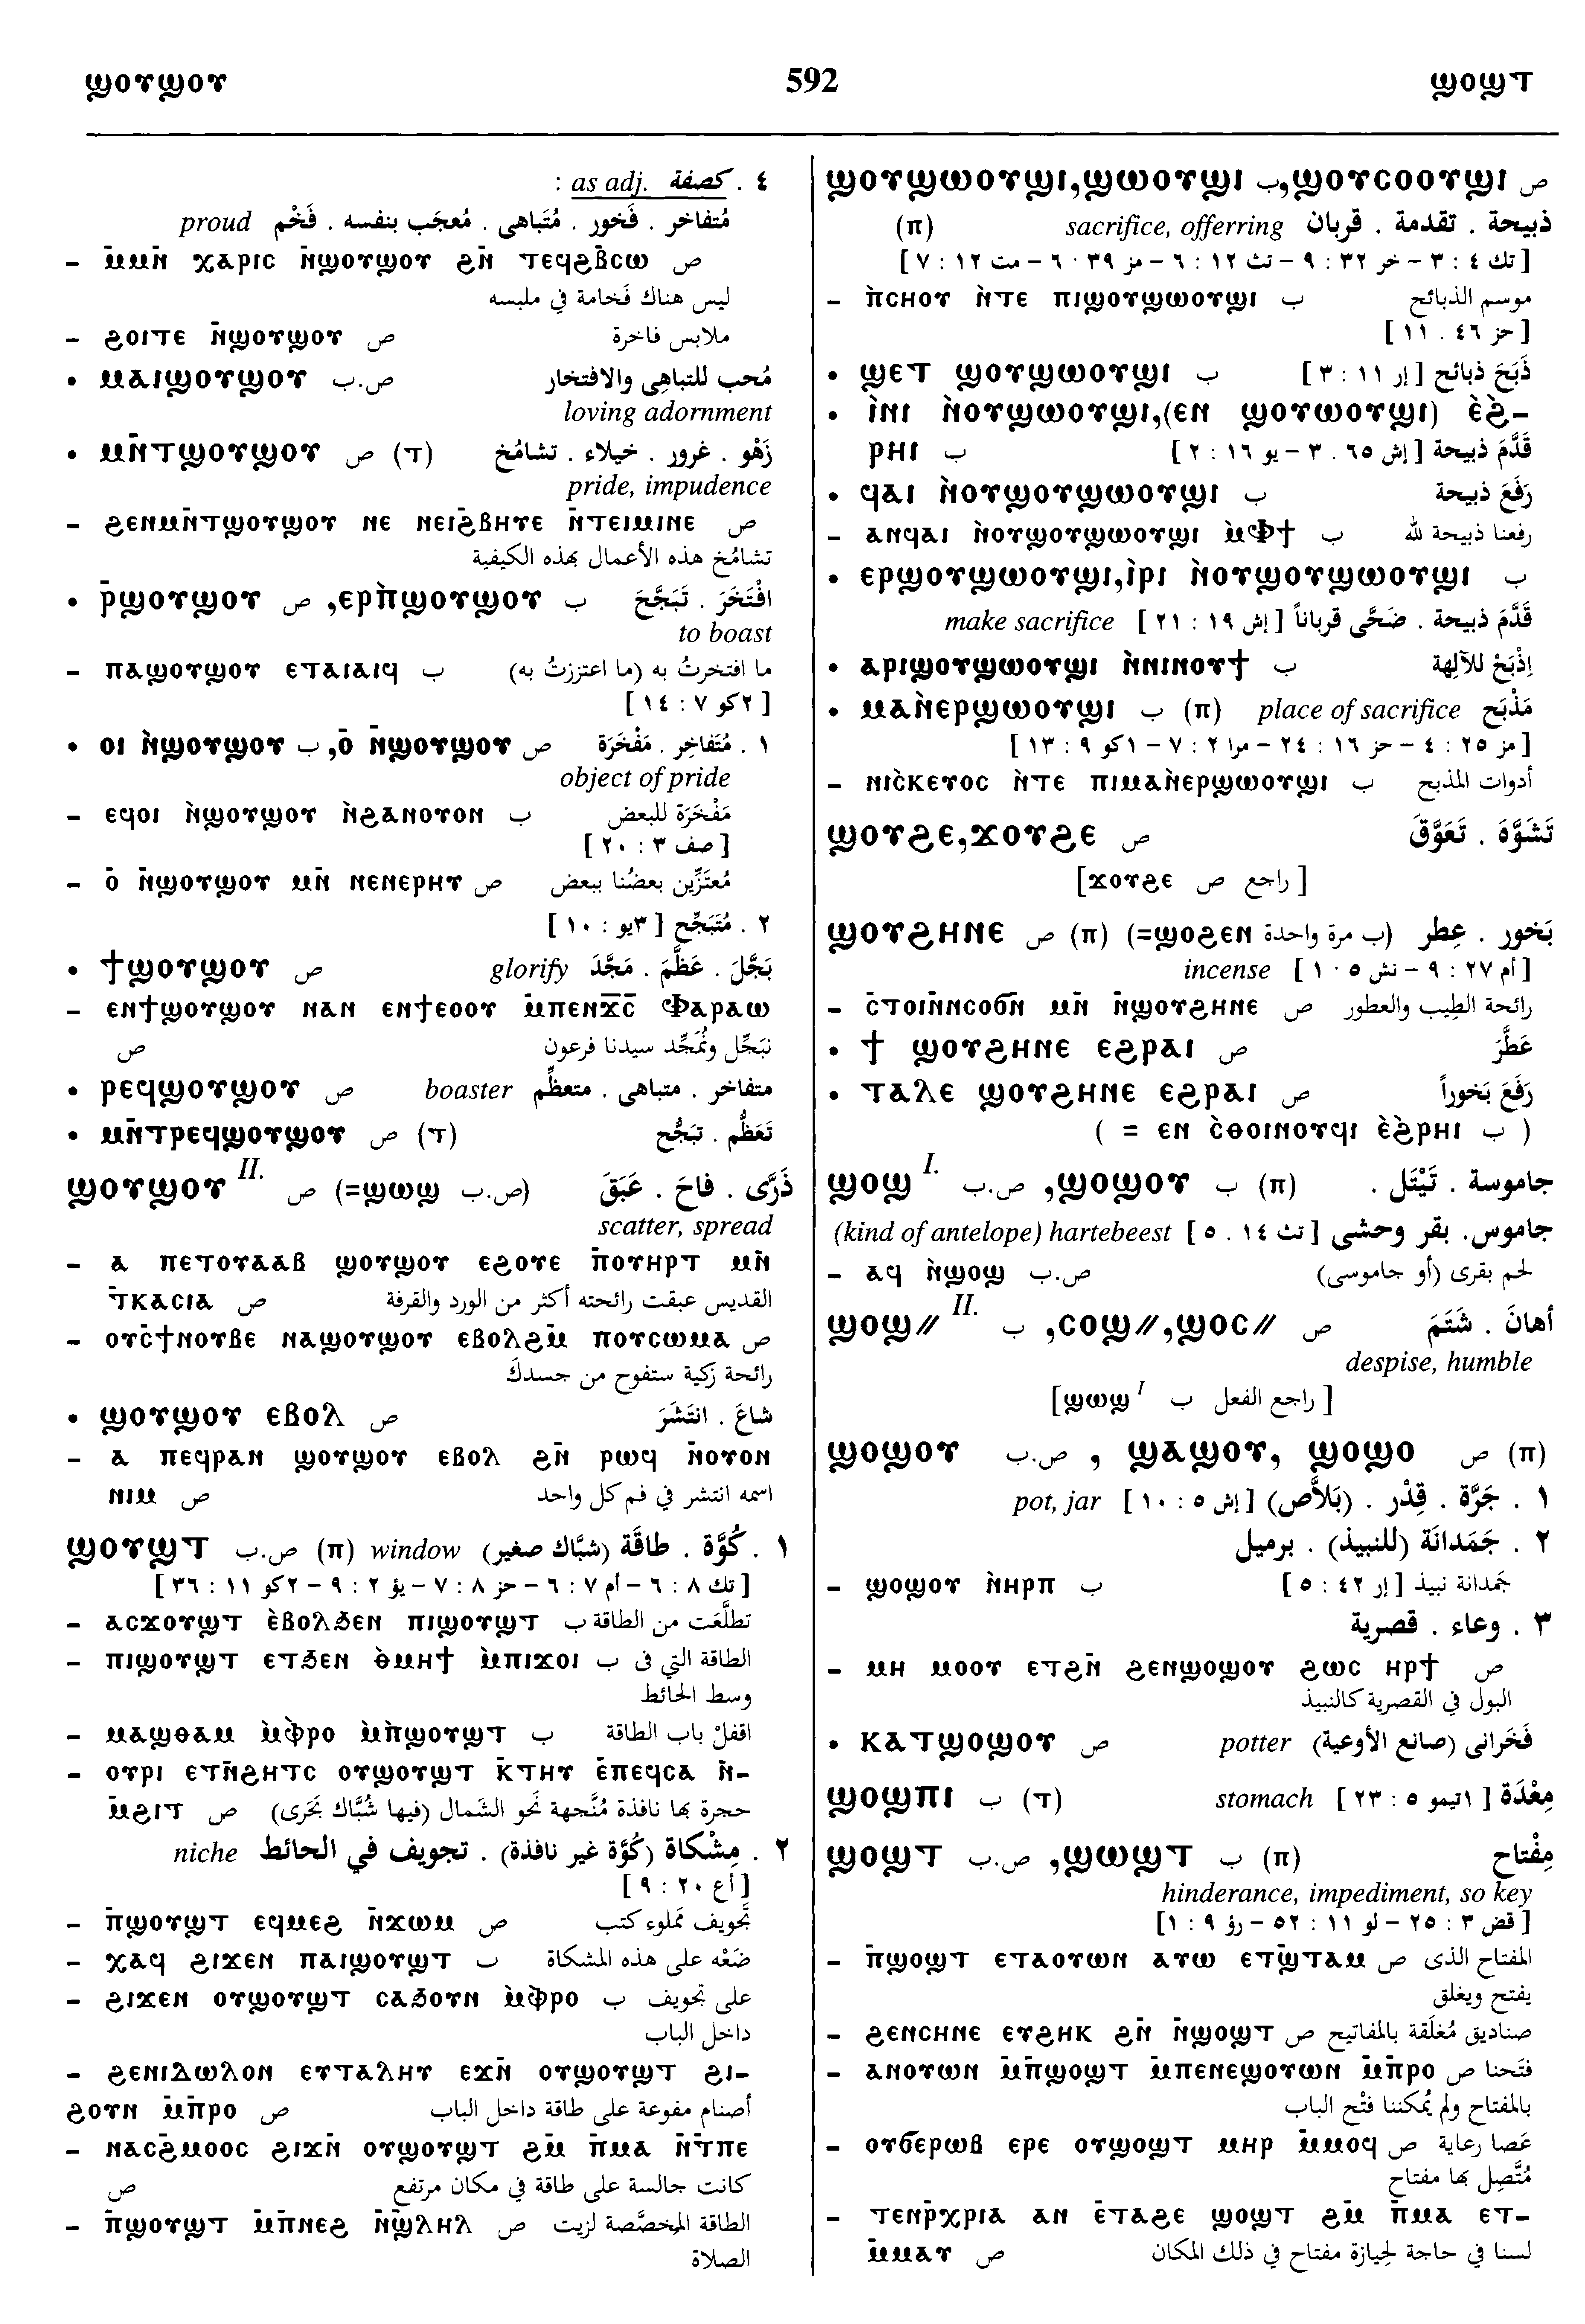 ϣⲟⲩϣⲟⲩ 592 ϣⲟϣⲧ
٤ . كصفة as adj. :
مُتفاخر . فَخور . مُتَباهى . مُعجَب بنفسه . فَخْم proud
– ⲙ̄ⲙⲛ̄ ⲭⲁⲣⲓⲥ ⲛ̄ϣⲟⲩϣⲟⲩ ϩⲛ̄ ⲧⲉϥϩⲃ̄ⲥⲱ ص
ليس هناك فَخامة في ملبسه
– ϩⲟⲓⲧⲉ ⲛ̄ϣⲟⲩϣⲟⲩ ص ملابس فاخرة
• ⲙⲁⲓϣⲟⲩϣⲟⲩ ص.ب مُحب للتباهى والافتخار
loving adornment
• ⲙⲛ̄ⲧϣⲟⲩϣⲟⲩ ص (ⲧ) زَهْو . غرور . خيلاء . تشامُخ
pride, impudence
– ϩⲉⲛⲙⲛ̄ⲧϣⲟⲩϣⲟⲩ ⲛⲉ ⲛⲉⲓϩⲃⲏⲩⲉ ⲛ̄ⲧⲉⲓⲙⲓⲛⲉ ص
تشامُخ هذه الأعمال بهذه الكيفية
• ⲣ̄ϣⲟⲩϣⲟⲩ ص ,ⲉⲣⲡ̀ϣⲟⲩϣⲟⲩ ب افْتَخَرَ . تَبَجَّحَ
to boast
– ⲡⲁϣⲟⲩϣⲟⲩ ⲉⲧⲁⲓⲁⲓϥ ب ما افتخرتُ به (ما اعتززتُ به)
[ ٢كو ٧ : ١٤ ]
• ⲟⲓ ⲛ̀ϣⲟⲩϣⲟⲩ ب ,ⲟ̄ ⲛ̄ϣⲟⲩϣⲟⲩ ص ١ . مُتَفاخِر . مَفْخَرَة
object of pride
– ⲉϥⲟⲓ ⲛ̀ϣⲟⲩϣⲟⲩ ⲛ̀ϩⲁⲛⲟⲩⲟⲛ ب مَفْخَرَة للبعض
[ صف ٣ : ٢٠ ]
– ⲟ̄ ⲛ̄ϣⲟⲩϣⲟⲩ ⲙⲛ̄ ⲛⲉⲛⲉⲣⲏⲩ ص مُعتَزِّين بعضُنا ببعض
٢ . مُتَبَجِّح [ ٣يو : ١٠ ]
• ϯϣⲟⲩϣⲟⲩ ص بَجَّلَ . عَظَّمَ . مَجَّدَ glorify
– ⲉⲛϯϣⲟⲩϣⲟⲩ ⲛⲁⲛ ⲉⲛϯⲉⲟⲟⲩ ⲙ̄ⲡⲉⲛϫ̄ⲥ̄ ⲫⲁⲣⲁⲱ
ص نبَجِّل ونُمَجِّد سيدنا فرعون
• ⲣⲉϥϣⲟⲩϣⲟⲩ ص متفاخر . متباهى . متعظِّم boaster
• ⲙⲛ̄ⲧⲣⲉϥϣⲟⲩϣⲟⲩ ص (ⲧ) تَعَظُّم . تبَجُّح
ϣⲟⲩϣⲟⲩ II. ص (=ϣⲱϣ ص.ب) ذَرَّى . فاحَ . عَبَقَ
scatter, spread
– ⲁ ⲡⲉⲧⲟⲩⲁⲁⲃ ϣⲟⲩϣⲟⲩ ⲉϩⲟⲧⲉ ⲡ̄ⲟⲩⲏⲣⲧ ⲙⲛ̄
ⲧ̄ⲕⲁⲥⲓⲁ ص القديس عبقت رائحته أكثر من الورد والقرفة
– ⲟⲩⲥ̄ϯⲛⲟⲩⲃⲉ ⲛⲁϣⲟⲩϣⲟⲩ ⲉⲃⲟⲗϩⲙ̄ ⲡⲟⲩⲥⲱⲙⲁ ص
رائحة زكية ستفوح من جسدكَ
• ϣⲟⲩϣⲟⲩ ⲉⲃⲟⲗ ص شاعَ . انتَشَرَ
– ⲁ ⲡⲉϥⲣⲁⲛ ϣⲟⲩϣⲟⲩ ⲉⲃⲟⲗ ϩⲛ̄ ⲣⲱϥ ⲛ̄ⲟⲩⲟⲛ
ⲛⲓⲙ ص اسمه انتشر في فم كل واحد
ϣⲟⲩϣⲧ ص.ب (ⲡ) window ١ . كُوَّة . طاقَة (شبَّاك صغير)
[ تك ٨ : ٦ – أم ٧ : ٦ – حز ٨ : ٧ – يؤ ٢ : ٩ – ٢كو ١١ : ٣٦ ]
– ⲁⲥϫⲟⲩϣⲧ ⲉ̀ⲃⲟⲗϧⲉⲛ ⲡⲓϣⲟⲩϣⲧ ب تطلَّعَت من الطاقة
– ⲡⲓϣⲟⲩϣⲧ ⲉⲧϧⲉⲛ ⲑ̀ⲙⲏϯ ⲙ̀ⲡⲓϫⲟⲓ ب الطاقة التي فى
وسط الحائط
– ⲙⲁϣⲑⲁⲙ ⲙ̀ⲫⲣⲟ ⲙ̀ⲡ̀ϣⲟⲩϣⲧ ب اقفلْ باب الطاقة
– ⲟⲩⲣⲓ ⲉⲧⲛ̄ϩⲏⲧⲥ ⲟⲩϣⲟⲩϣⲧ ⲕ̄ⲧⲏⲩ ⲉ̄ⲡⲉϥⲥⲁ ⲛ̄-
ⲙ̄ϩⲓⲧ ص حجرة بها نافذة مُتَّجهة نَحو الشمال (فيها شُبَّاك بَحَرى)
٢ . مِشْكاة (كُوَّة غير نافذة) . تجويف في الحائط niche
[ أع ٢٠ : ٩ ]
– ⲡ̄ϣⲟⲩϣⲧ ⲉϥⲙⲉϩ ⲛ̄ϫⲱⲙ ص تَجويف مَملوء كتب
– ⲭⲁϥ ϩⲓϫⲉⲛ ⲡⲁⲓϣⲟⲩϣⲧ ب ضَعْه على هذه المشكاة
– ϩⲓϫⲉⲛ ⲟⲩϣⲟⲩϣⲧ ⲥⲁϧⲟⲩⲛ ⲙ̀ⲫⲣⲟ ب على تجويف
داخل الباب
– ϩⲉⲛⲓⲇⲱⲗⲟⲛ ⲉⲩⲧⲁⲗⲏⲩ ⲉϫⲛ̄ ⲟⲩϣⲟⲩϣⲧ ϩⲓ-
ϩⲟⲩⲛ ⲙ̄ⲡⲣⲟ ص أصنام مفوعة على طاقة داخل الباب
– ⲛⲁⲥϩ̄ⲙⲟⲟⲥ ϩⲓϫⲛ̄ ⲟⲩϣⲟⲩϣⲧ ϩⲙ̄ ⲡ̄ⲙⲁ ⲛ̄ⲧⲡⲉ
ص كانت جالسة على طاقة في مكان مرتفع
– ⲡ̄ϣⲟⲩϣⲧ ⲙ̄ⲡ̄ⲛⲉϩ ⲛ̄ϣ̄ⲗⲏⲗ ص الطاقة المخصَّصة لزيت
الصلاة
ϣⲟⲩϣⲱⲟⲩϣⲓ,ϣⲱⲟⲩϣⲓ ب,ϣⲟⲩⲥⲟⲟⲩϣⲓ ص
(ⲡ) sacrifice, offerring ذبيحة . تقدمة . قربان
[ تك ٤ : ٣ – خر ٣٢ : ٩ – تث ١٢ : ٦ – مز ٣٩ ٠ ٦ – مت ١٢ : ٧ ]
– ⲡ̀ⲥⲏⲟⲩ ⲛ̀ⲧⲉ ⲡⲓϣⲟⲩϣⲱⲟⲩϣⲓ ب موسم الذبائح
[ حز ٤٦ . ١١ ]
• ϣⲉⲧ ϣⲟⲩϣⲱⲟⲩϣⲓ ب ذَبَحَ ذبائح [ إر ١١ : ٣ ]
• ⲓ̀ⲛⲓ ⲛ̀ⲟⲩϣⲱⲟⲩϣⲓ,(ⲉⲛ ϣⲟⲩⲱⲟⲩϣⲓ) ⲉ̀ϩ̀-
ⲣⲏⲓ ب قَدَّمَ ذبيحة [ إش ٦٥ . ٣ – يو ١٦ : ٢ ]
• ϥⲁⲓ ⲛ̀ⲟⲩϣⲟⲩϣⲱⲟⲩϣⲓ ب رَفَعَ ذبيحة
– ⲁⲛϥⲁⲓ ⲛ̀ⲟⲩϣⲟⲩϣⲱⲟⲩϣⲓ ⲙ̀ⲫϯ ب رفعنا ذبيحة لله
• ⲉⲣϣⲟⲩϣⲱⲟⲩϣⲓ,ⲓ̀ⲣⲓ ⲛ̀ⲟⲩϣⲟⲩϣⲱⲟⲩϣⲓ ب
make sacrifice قَدَّمَ ذبيحة . ضَحَّى قرباناً [ إش ١٩ : ٢١ ]
• ⲁⲣⲓϣⲟⲩϣⲱⲟⲩϣⲓ ⲛ̀ⲛⲓⲛⲟⲩϯ ب اِذْبَحْ للآلِهة
• ⲙⲁⲛ̀ⲉⲣϣⲱⲟⲩϣⲓ ب (ⲡ) place of sacrifice مَذْبَح
[ مز ٢٥ : ٤ – حز ١٦ : ٢٤ – مرا ٢ : ٧ – ١كو ٩ : ١٣ ]
– ⲛⲓⲥ̀ⲕⲉⲩⲟⲥ ⲛ̀ⲧⲉ ⲡⲓⲙⲁⲛ̀ⲉⲣϣⲱⲟⲩϣⲓ ب أدوات المذبح
ϣⲟⲩϩⲉ,ϫⲟⲩϩⲉ ص تَشَوَّهَ . تَعَوَّقَ
[ راجع ص ϫⲟⲩϩⲉ]
ϣⲟⲩϩⲏⲛⲉ ص (ⲡ) (=ϣⲟϩⲉⲛ ب مرة واحدة) بَخور . عِطر
incense [ أم ٢٧ : ٩ – نش ٥ ٠ ١ ]
– ⲥ̄ⲧⲟⲓⲛ̄ⲛⲥⲟϭⲛ̄ ⲙⲛ̄ ⲛ̄ϣⲟⲩϩⲏⲛⲉ ص رائحة الطِيب والعطور
• ϯ ϣⲟⲩϩⲏⲛⲉ ⲉϩⲣⲁⲓ ص عَطَّرَ
• ⲧⲁⲗⲉ ϣⲟⲩϩⲏⲛⲉ ⲉϩⲣⲁⲓ ص رَفَعَ بَخوراً
( = ⲉⲛ ⲥ̀ⲑⲟⲓⲛⲟⲩϥⲓ ⲉ̀ϩ̀ⲣⲏⲓ ب )
ϣⲟϣ I. ص.ب ,ϣⲟϣⲟⲩ ب (ⲡ) جاموسة . تَيْتَل .
(kind of antelope) hartebeest جاموس. بقر وحشى [ تث ١٤ . ٥ ]
– ⲁϥ ⲛ̀ϣⲟϣ ص.ب لحم بقرى (أو جاموسى)
ϣⲟϣ// II. ب ,ⲥⲟϣ//,ϣⲟⲥ// ص أهانَ . شَتَمَ
despise, humble
[ راجع الفعل ب ϣⲱϣ I]
ϣⲟϣⲟⲩ ص.ب , ϣⲁϣⲟⲩ, ϣⲟϣⲟ ص (ⲡ)
١ . جَرَّة . قِدْر . (بَلاَّص) [ إش ٥ : ١٠ ] pot, jar
٢ . جَمَدانَة (للنبيذ) . برميل
– ϣⲟϣⲟⲩ ⲛ̀ⲏⲣⲡ ب جَمدانة نبيذ [ إر ٤٢ : ٥ ]
٣ . وعاء . قصرية
– ⲙⲏ ⲙⲟⲟⲩ ⲉⲧϩⲛ̄ ϩⲉⲛϣⲟϣⲟⲩ ϩⲱⲥ ⲏⲣϯ ص
البول في القصرية كالنبيذ
• ⲕⲁⲧϣⲟϣⲟⲩ ص فَخَرانى (صانع الأوعية) potter
ϣⲟϣⲡⲓ ب (ⲧ) مِعْدَة [ ١تيمو ٥ : ٢٣ ] stomach
ϣⲟϣⲧ ص.ب ,ϣⲱϣⲧ ب (ⲡ) مِفْتاح
hinderance, impediment, so key
[ قض ٣ : ٢٥ – لو ١١ : ٥٢ – رؤ ٩ : ١]
– ⲡ̄ϣⲟϣⲧ ⲉⲧⲁⲟⲩⲱⲛ ⲁⲩⲱ ⲉⲧϣ̄ⲧⲁⲙ ص المفتاح الذى
يفتح ويغلق
– ϩⲉⲛⲥⲏⲛⲉ ⲉⲩϩⲏⲕ ϩⲛ̄ ⲛ̄ϣⲟϣⲧ ص صناديق مُغلَقة بالمفاتيح
– ⲁⲛⲟⲩⲱⲛ ⲙ̄ⲡ̄ϣⲟϣⲧ ⲙ̄ⲡⲉⲛⲉϣⲟⲩⲱⲛ ⲙ̄ⲡ̄ⲣⲟ ص فتَحنا
بالمفتاح ولم يُمكننا فتْح الباب
– ⲟⲩϭⲉⲣⲱⲃ ⲉⲣⲉ ⲟⲩϣⲟϣⲧ ⲙⲏⲣ ⲙ̄ⲙⲟϥ ص عَصا رعاية
مُتَّصِل بها مفتاح
– ⲧⲉⲛⲣ̄ⲭⲣⲓⲁ ⲁⲛ ⲉ̄ⲧⲁϩⲉ ϣⲟϣⲧ ϩⲙ̄ ⲡ̄ⲙⲁ ⲉⲧ-
ⲙ̄ⲙⲁⲩ ص لسنا في حاجة لِحيازة مفتاح في ذلك المكان